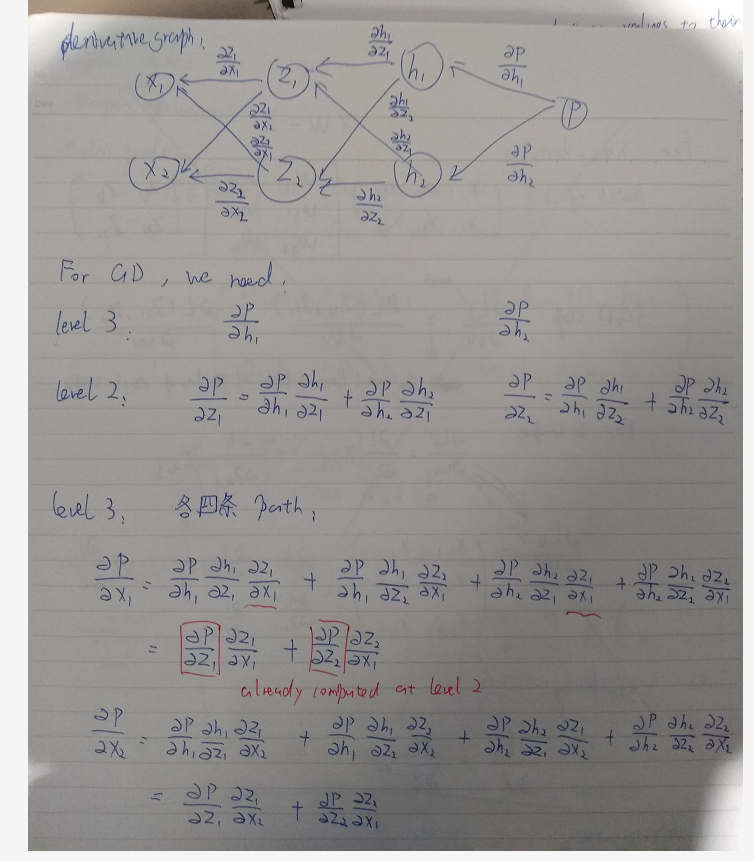 values to their
derivative graph:
∂Z₁/∂X₁ ∂h₁/∂Z₁ ∂P/∂h₁
X₁ Z₁ h₁
∂Z₁/∂X₂ ∂h₁/∂Z₂ P
∂Z₂/∂X₁ ∂h₂/∂Z₁
X₂ Z₂ h₂ ∂P/∂h₂
∂Z₂/∂X₂ ∂h₂/∂Z₂
For GD, we need:
level 3: ∂P/∂h₁ ∂P/∂h₂
level 2: ∂P/∂Z₁ = ∂P/∂h₁ ∂h₁/∂Z₁ + ∂P/∂h₂ ∂h₂/∂Z₁ ∂P/∂Z₂ = ∂P/∂h₁ ∂h₁/∂Z₂ + ∂P/∂h₂ ∂h₂/∂Z₂
level 3: 各四条 path:
∂P/∂X₁ = ∂P/∂h₁ ∂h₁/∂Z₁ ∂Z₁/∂X₁ + ∂P/∂h₁ ∂h₁/∂Z₂ ∂Z₂/∂X₁ + ∂P/∂h₂ ∂h₂/∂Z₁ ∂Z₁/∂X₁ + ∂P/∂h₂ ∂h₂/∂Z₂ ∂Z₂/∂X₁
= ∂P/∂Z₁ ∂Z₁/∂X₁ + ∂P/∂Z₂ ∂Z₂/∂X₁
already computed at level 2
∂P/∂X₂ = ∂P/∂h₁ ∂h₁/∂Z₁ ∂Z₁/∂X₂ + ∂P/∂h₁ ∂h₁/∂Z₂ ∂Z₂/∂X₂ + ∂P/∂h₂ ∂h₂/∂Z₁ ∂Z₁/∂X₂ + ∂P/∂h₂ ∂h₂/∂Z₂ ∂Z₂/∂X₂
= ∂P/∂Z₁ ∂Z₁/∂X₂ + ∂P/∂Z₂ ∂Z₂/∂X₁